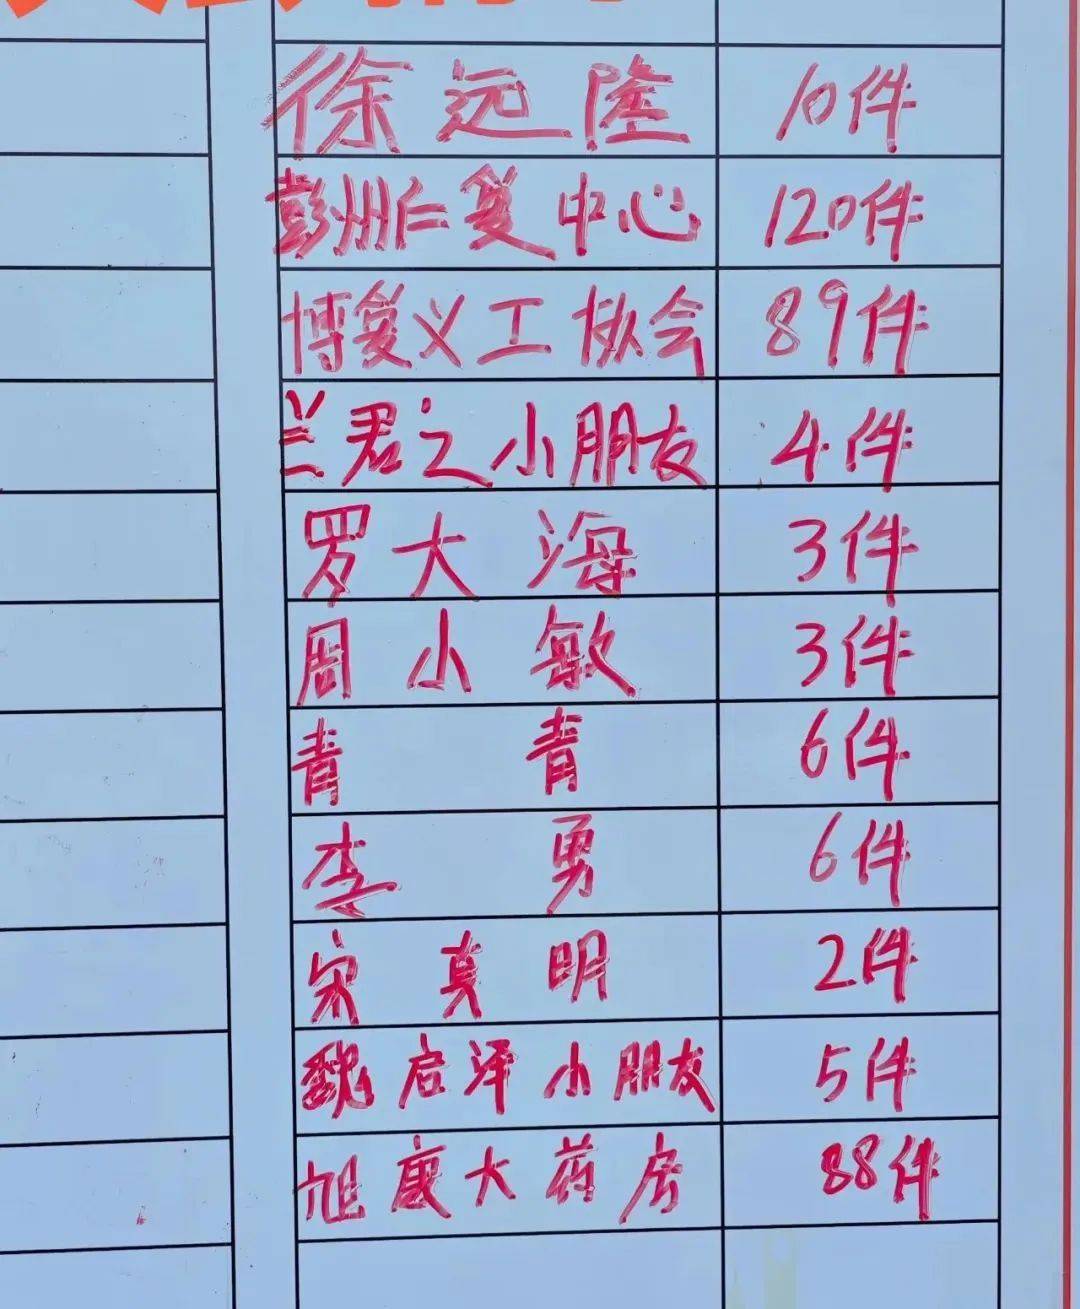 徐远隆 10件
彭州仁爱中心 120件
博爱义工协会 89件
兰君之小朋友 4件
罗大海 3件
周小敏 3件
青青 6件
李勇 6件
宋真明 2件
魏启泽小朋友 5件
旭康大药房 88件